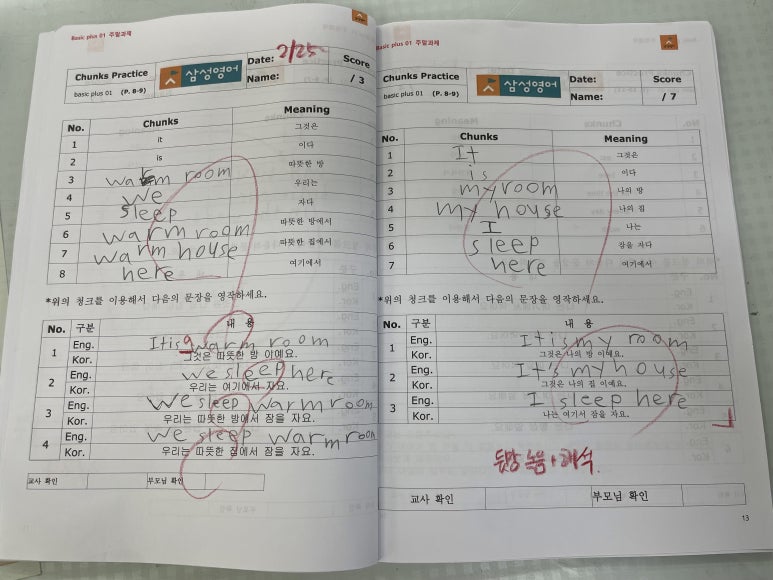 Basic plus 01 주말과제
Chunks Practice
basic plus 01 (P. 8-9)
삼성영어
Date: 2/25
Name:
Score
/ 3
No. Chunks Meaning
1 it 그것은
2 is 이다
3 warm room 따뜻한 방
4 we 우리는
5 sleep 자다
6 warm room 따뜻한 방에서
7 warm house 따뜻한 집에서
8 here 여기에서
*위의 청크를 이용해서 다음의 문장을 영작하세요.
No. 구분 내 용
1 Eng. It is a warm room
Kor. 그것은 따뜻한 방 이에요.
2 Eng. we sleep here
Kor. 우리는 여기에서 자요.
3 Eng. we sleep warm room
Kor. 우리는 따뜻한 방에서 잠을 자요.
4 Eng. we sleep warm room
Kor. 우리는 따뜻한 집에서 잠을 자요.
교사 확인 부모님 확인
Basic plus 01 주말과제
Chunks Practice
basic plus 01 (P. 8-9)
삼성영어
Date:
Name:
Score
/ 7
No. Chunks Meaning
1 It 그것은
2 is 이다
3 my room 나의 방
4 my house 나의 집
5 I 나는
6 sleep 잠을 자다
7 here 여기에서
*위의 청크를 이용해서 다음의 문장을 영작하세요.
No. 구분 내 용
1 Eng. It is my room
Kor. 그것은 나의 방 이에요.
2 Eng. It's my house
Kor. 그것은 나의 집 이에요.
3 Eng. I sleep here
Kor. 나는 여기서 잠을 자요.
뒷장 녹음 + 해석.
교사 확인 부모님 확인
13